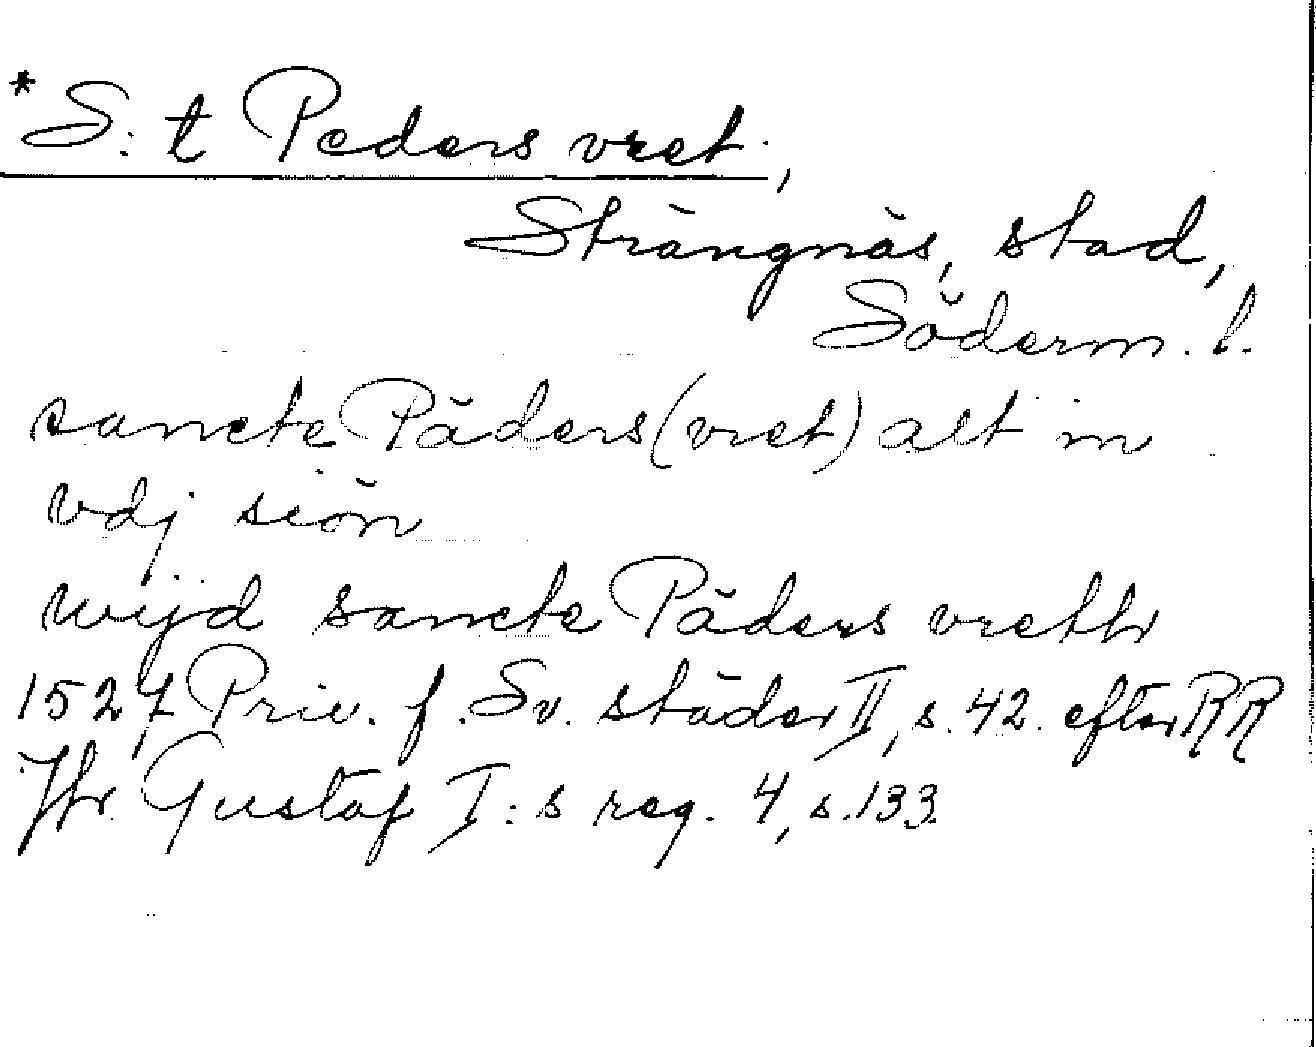 *S:t Peders vret,
Strängnäs, stad,
Söderm. l.
sancte Päders (vret) alt in
vdj siön
wijd sancte Päders vrettr
1527 Priv. f. Sv. städer II, s. 42. efter RR
Jfr Gustaf I:s reg. 4, s. 133